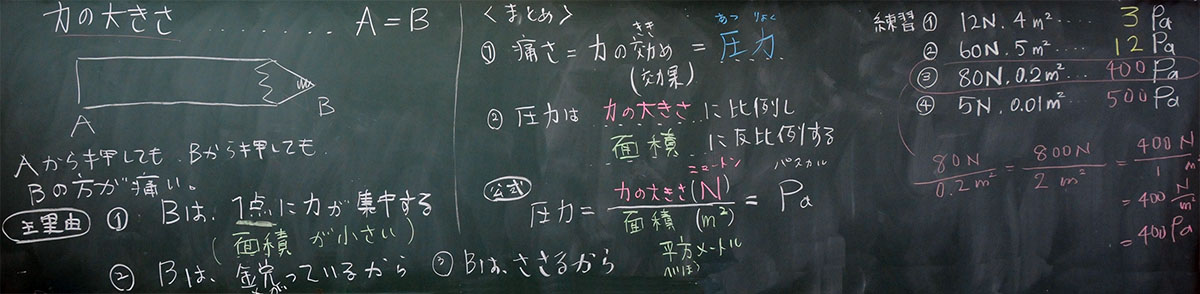 力の大きさ ........... A = B
A
B
Aから押しても Bから押しても
Bの方が痛い。
理由 ① Bは、1点に力が集中する
(面積が小さい)
② Bは、尖っているから ③ Bは、ささるから
とが
<まとめ>
① 痛さ = 力の効め = 圧力
きき
あつりょく
(効果)
② 圧力は 力の大きさ に比例し
面積 に反比例する
公式
ニュートン パスカル
圧力 = 力の大きさ(N) / 面積(m²) = Pa
平方メートル
へいほう
練習 ① 12N. 4m² .... 3 Pa
② 60N. 5m² .... 12 Pa
③ 80N. 0.2m² ... 400 Pa
④ 5N. 0.01m² ... 500 Pa
80N / 0.2m² = 800N / 2m² = 400N / 1m²
= 400 N/m²
= 400Pa